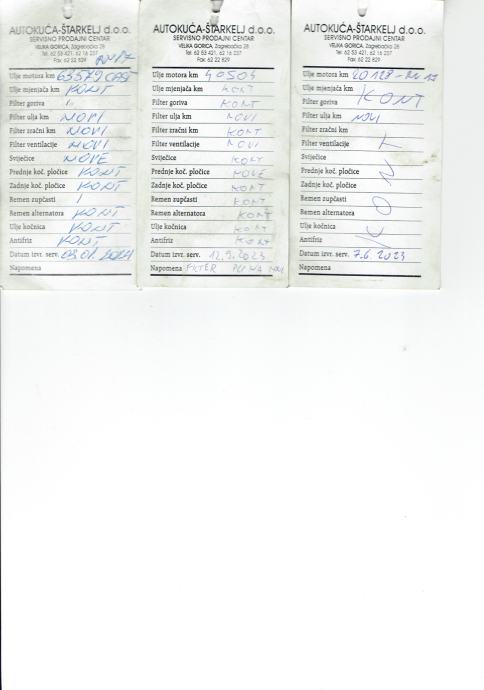 AUTOKUĆA-ŠTARKELJ d.o.o.
SERVISNO PRODAJNI CENTAR
VELIKA GORICA, Zagrebačka 26
Tel. 62 53 421, 62 16 237
Fax: 62 22 829
Ulje motora km
Ulje mjenjača km KONT
Filter goriva
Filter ulja km NOVI
Filter zračni km NOVI
Filter ventilacije NOVI
Svijećice NOVE
Prednje koč. pločice KONT
Zadnje koč. pločice KONT
Remen zupčasti
Remen alternatora KONT
Ulje kočnica KONT
Antifriz KONT
Datum izvr. serv.
Napomena
AUTOKUĆA-ŠTARKELJ d.o.o.
SERVISNO PRODAJNI CENTAR
VELIKA GORICA, Zagrebačka 26
Tel. 62 53 421, 62 16 237
Fax: 62 22 829
Ulje motora km
Ulje mjenjača km KONT
Filter goriva KONT
Filter ulja km NOVI
Filter zračni km KONT
Filter ventilacije NOVI
Svijećice KONT
Prednje koč. pločice NOVE
Zadnje koč. pločice KONT
Remen zupčasti KONT
Remen alternatora KONT
Ulje kočnica KONT
Antifriz KONT
Datum izvr. serv. 12.9.2023
Napomena FILTER
AUTOKUĆA-ŠTARKELJ d.o.o.
SERVISNO PRODAJNI CENTAR
VELIKA GORICA, Zagrebačka 26
Tel. 62 53 421, 62 16 237
Fax: 62 22 829
Ulje motora km
Ulje mjenjača km
Filter goriva KONT
Filter ulja km NOVI
Filter zračni km
Filter ventilacije
Svijećice
Prednje koč. pločice
Zadnje koč. pločice
Remen zupčasti
Remen alternatora
Ulje kočnica
Antifriz
KONT
Datum izvr. serv. 7.6.2023
Napomena